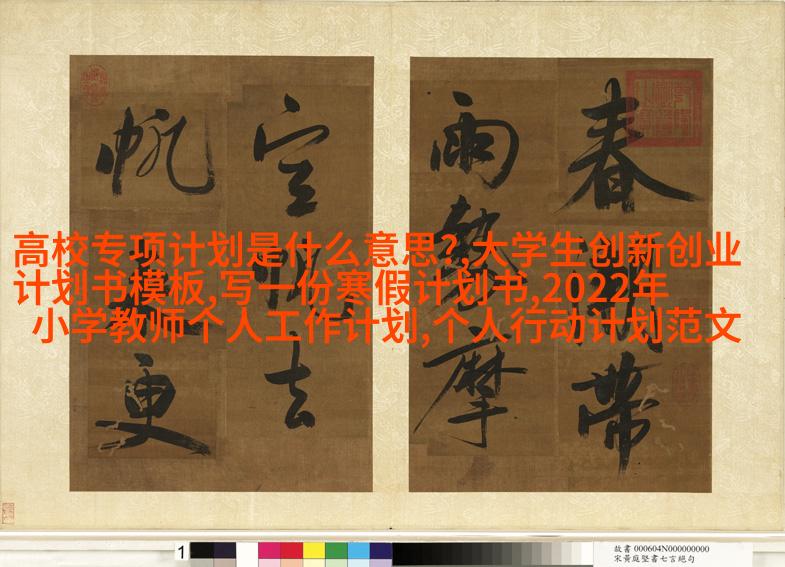 春帶
雨摩
空去
帆更
高校专项计划是什么意思?,大学生创新创业
计划书模板,写一份寒假计划书,2022年
小学教师个人工作计划,个人行动计划范文
1
故書 000604N000000000
宋黃庭堅書七言絕句